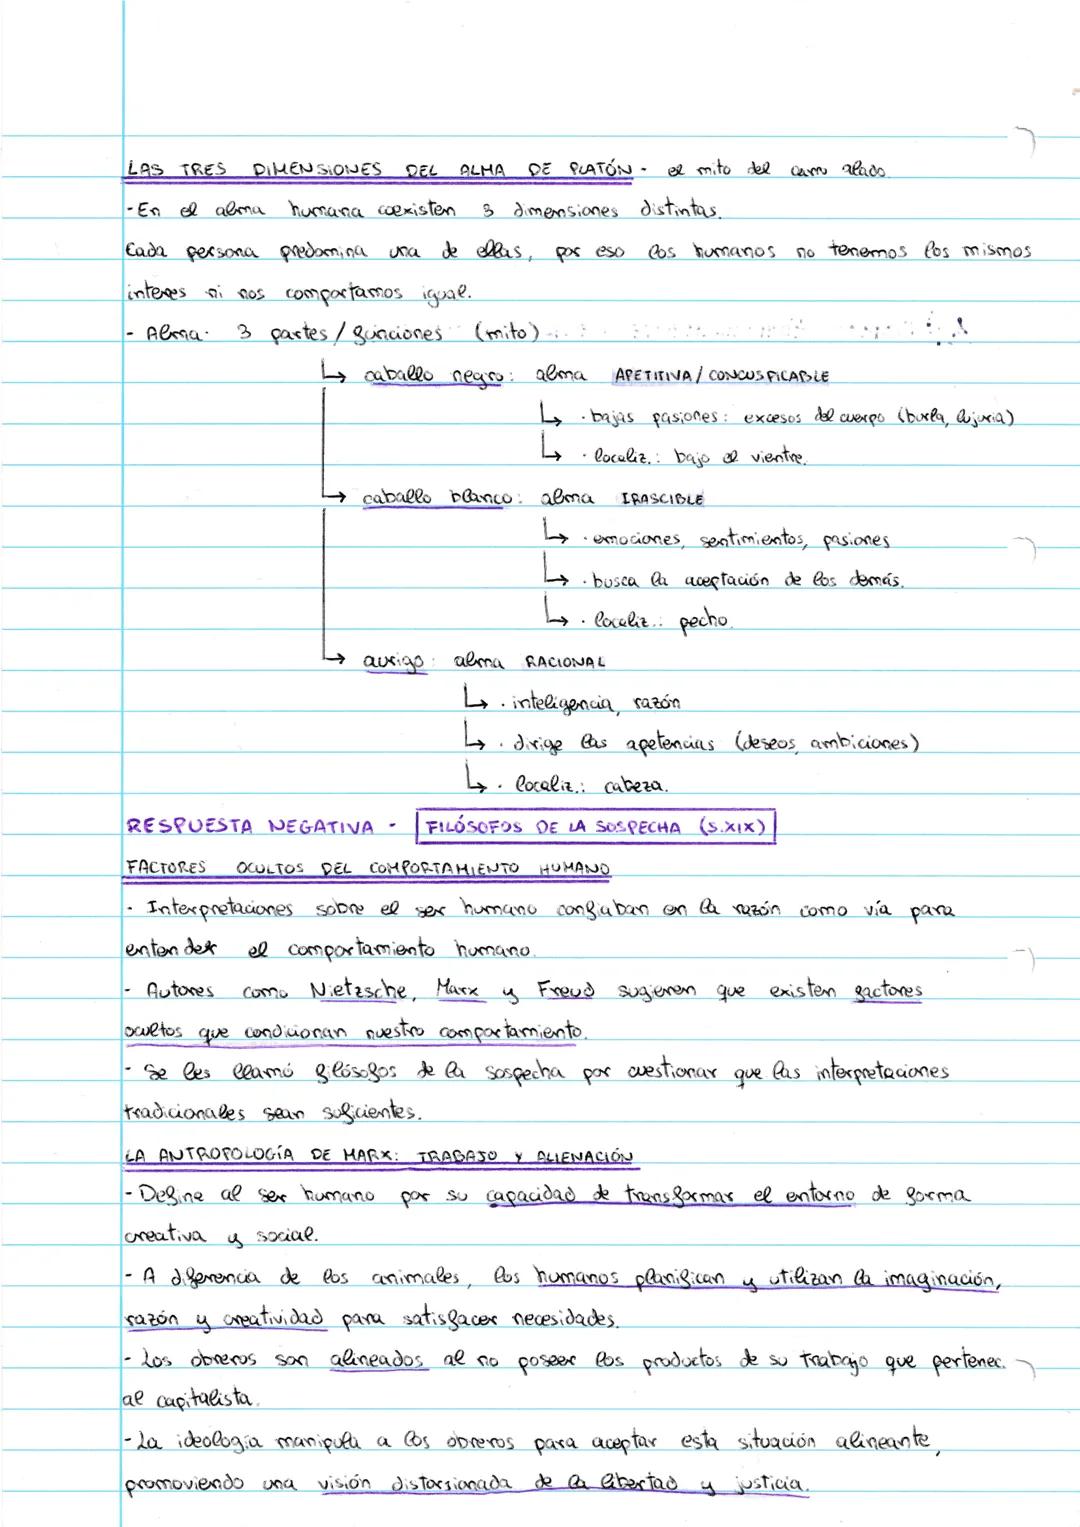 LAS TRES DIMENSIONES DEL ALMA DE PLATÓN - el mito del carro alado.
- En el alma humana coexisten 3 dimensiones distintas.
Cada persona predomina una de ellas, por eso los humanos no tenemos los mismos
interes ni nos comportamos igual.
- Alma: 3 partes / funciones (mito)
↳ caballo negro: alma APETITIVA / CONCUSPICABLE
↳ · bajas pasiones: excesos del cuerpo (burla, lujuria)
↳ · localiz.: bajo el vientre.
↳ caballo blanco: alma IRASCIBLE
↳ · emociones, sentimientos, pasiones
↳ · busca la aceptación de los demás.
↳ · localiz.: pecho.
↳ aurigo: alma RACIONAL
↳ · inteligencia, razón
↳ · dirige las apetencias (deseos, ambiciones)
↳ · localiz.: cabeza.
RESPUESTA NEGATIVA - FILÓSOFOS DE LA SOSPECHA (S.XIX)
FACTORES OCULTOS DEL COMPORTAMIENTO HUMANO
- Interpretaciones sobre el ser humano confiaban en la razón como vía para
entender el comportamiento humano.
- Autores como Nietzsche, Marx y Freud sugieren que existen factores
ocultos que condicionan nuestro comportamiento.
- Se les llamó filósofos de la sospecha por cuestionar que las interpretaciones
tradicionales sean suficientes.
LA ANTROPOLOGÍA DE MARX: TRABAJO Y ALIENACIÓN
- Define al ser humano por su capacidad de transformar el entorno de forma
creativa y social.
- A diferencia de los animales, los humanos planifican y utilizan la imaginación,
razón y creatividad para satisfacer necesidades.
- Los obreros son alineados al no poseer los productos de su trabajo que pertenec.
al capitalista.
- La ideología manipula a los obreros para aceptar esta situación alineante,
promoviendo una visión distorsionada de la libertad y justicia.